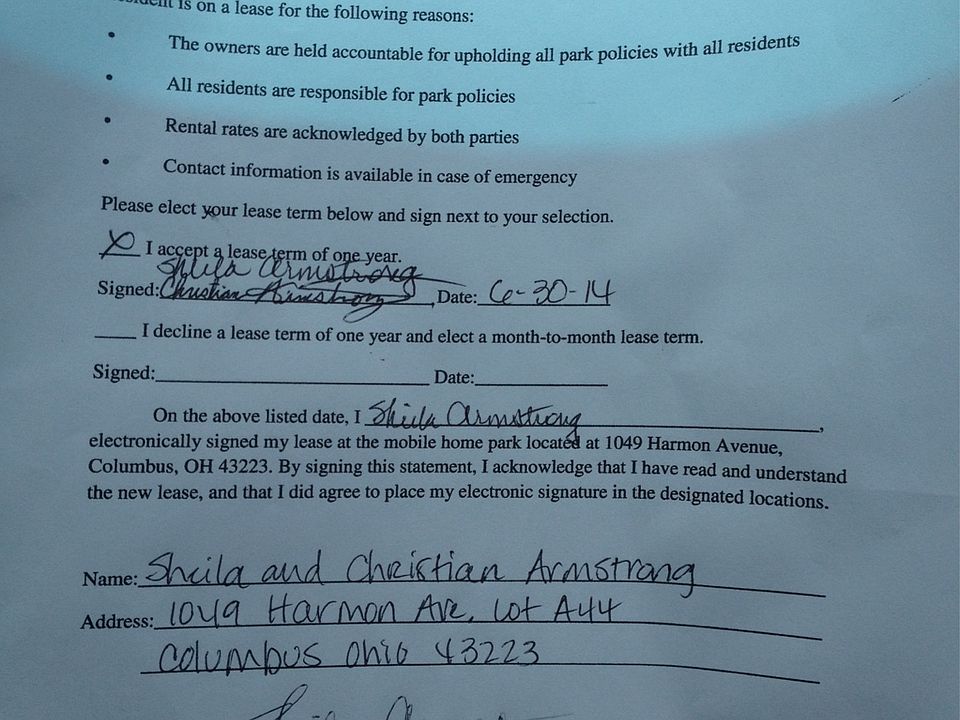 is on a lease for the following reasons:
• The owners are held accountable for upholding all park policies with all residents
• All residents are responsible for park policies
• Rental rates are acknowledged by both parties
• Contact information is available in case of emergency
Please elect your lease term below and sign next to your selection.
X I accept a lease term of one year.
Sheila Armstrong
Signed: Christian Armstrong, Date: 6-30-14
____ I decline a lease term of one year and elect a month-to-month lease term.
Signed:____________________ Date:__________
On the above listed date, I Sheila Armstrong,
electronically signed my lease at the mobile home park located at 1049 Harmon Avenue,
Columbus, OH 43223. By signing this statement, I acknowledge that I have read and understand
the new lease, and that I did agree to place my electronic signature in the designated locations.
Name: Sheila and Christian Armstrong
Address: 1049 Harmon Ave. Lot A44
Columbus Ohio 43223